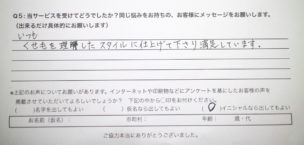 Q5：当サービスを受けてどうでしたか？同じ悩みをお持ちの、お客様にメッセージをお願いします。
（出来るだけ具体的にお願いします）
いつも
くせ毛を理解したスタイルに仕上げて下さり満足しています。
*上記のお声についてお願いがあります。インターネットや印刷物などにアンケートを基にしたお客様の声を
掲載させていただいてよろしいでしょうか？ 下記の中から○印をお付けください。
（ ）名字を出してもよい （ ）仮名なら出してもよい （○）イニシャルなら出してもよい
お名前（仮名）： 市町村： 年齢： 歳・代
ご協力本当にありがとうございました。